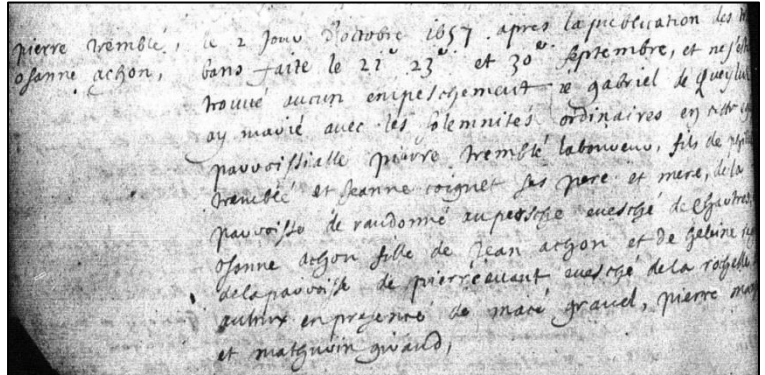 pierre tremblé,
osanne achon,
le 2 Jour d'octobre 1657. apres la publication des
bans faite le 21e 23e et 30e septembre, et ne s'est
trouvé aucun empeschement Je gabriel de queylus
ay marié avec les solemnités ordinaires en cette
parroissialle pierre tremblé laboureur, fils de
tremblé et Jeanne coignet ses pere et mere, de la
parroisse de randonné au persche evesché de Chartres,
osanne achon fille de Jean achon et de helaine
de la parroisse de evesché de la rochelle
en presence de macé gravel, pierre
et mathurin giraud,